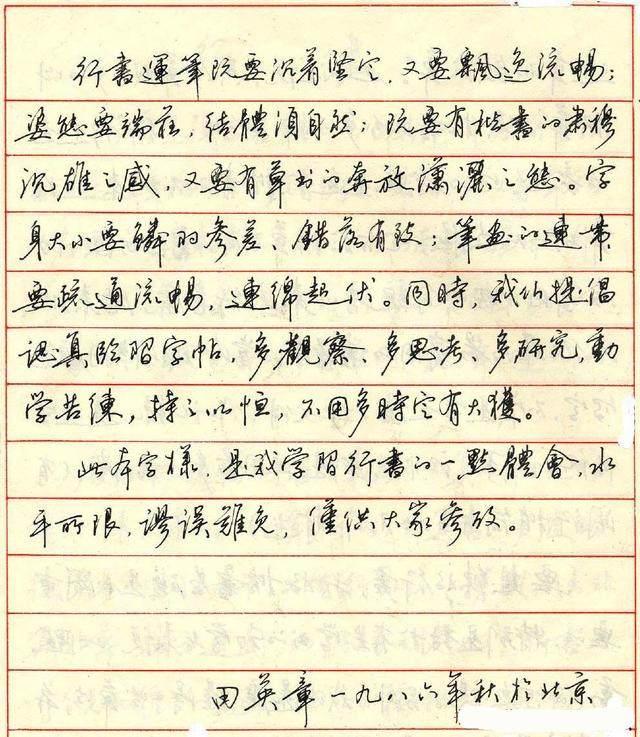 行書運筆既要沉着堅定，又要飄逸流暢；
姿態要端莊，結體須自然；既要有楷書的肅穆
沉雄之感，又要有草书的奔放瀟灑之態。字
身大小要鱗的參差、錯落有致；筆画的連带
要疏通流暢，連綿起伏。同時，我们提倡
認真临習字帖，多觀察、多思考、多研究，勤
学苦練，持之以恒，不用多時定有大獲。
此本字樣，是我学習行書的一點體會，水
平所限，謬误難免，僅供大家參攷。
田英章一九八六年秋於北京